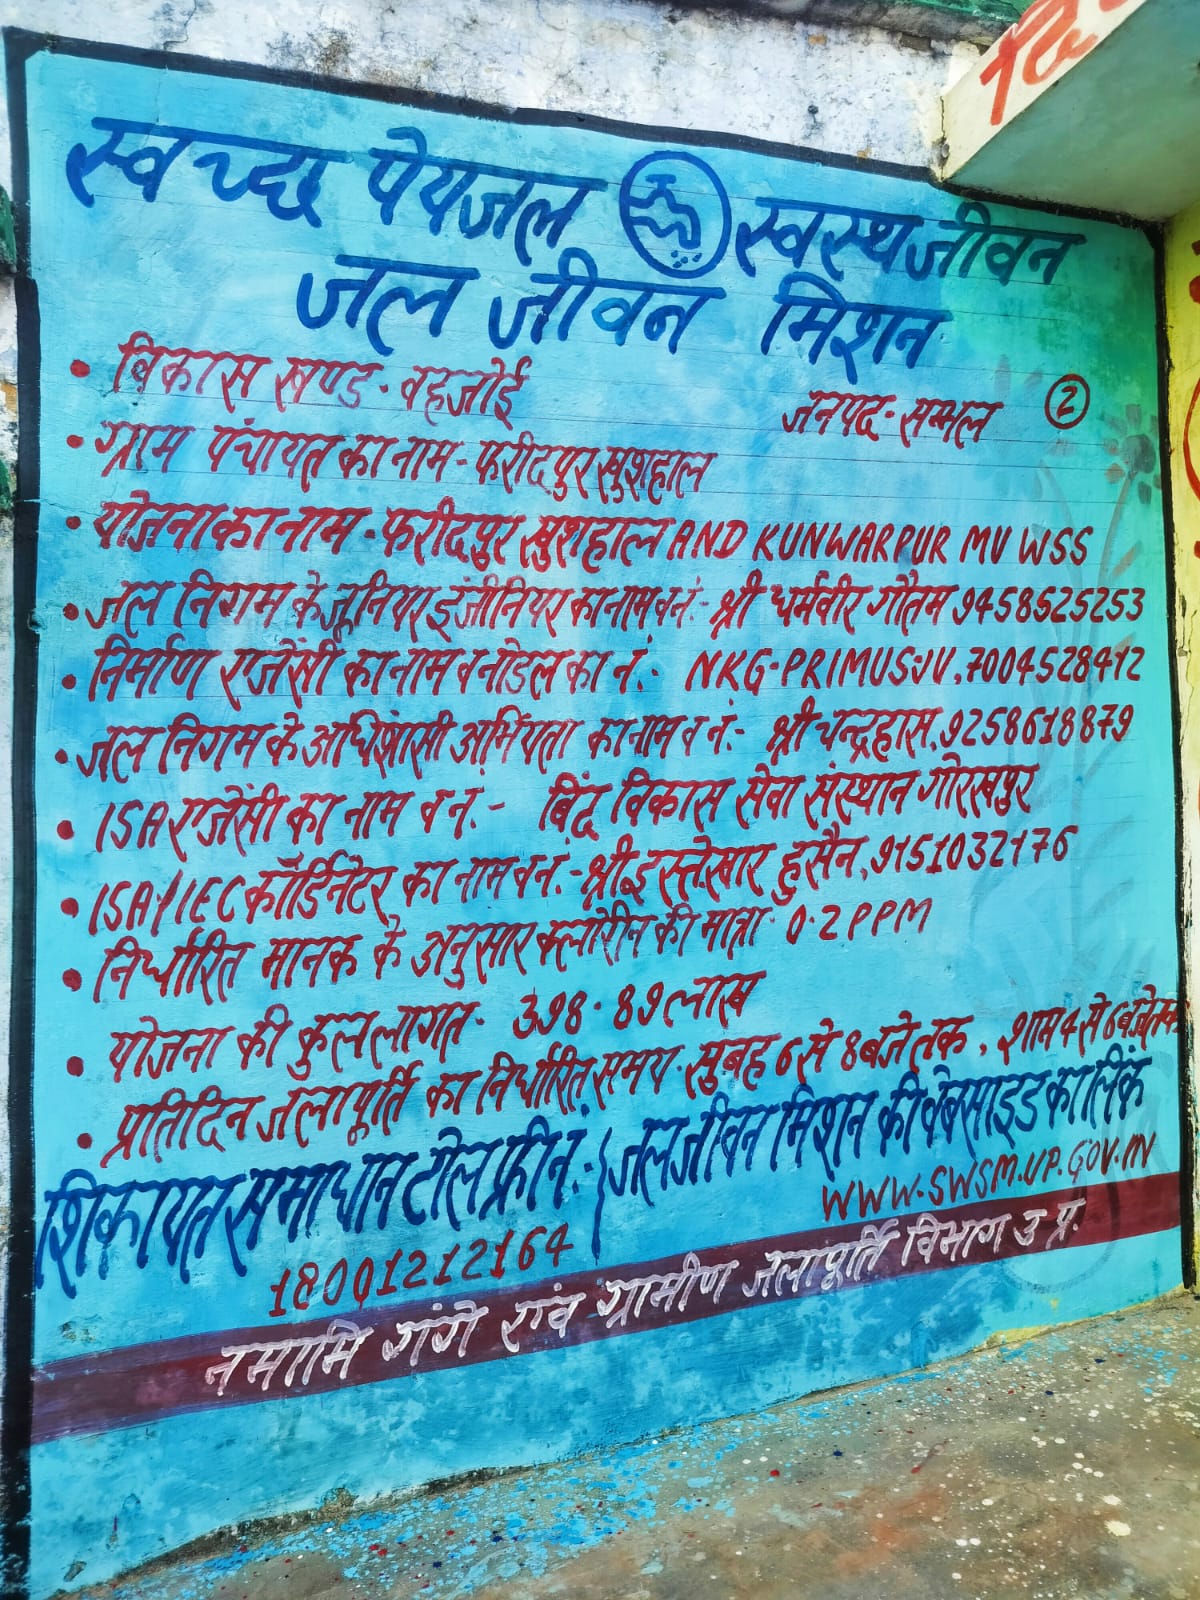 स्वच्छ पेयजल स्वस्थ जीवन
जल जीवन मिशन
• विकास खण्ड - वहजोई जनपद - सम्भल ②
• ग्राम पंचायत का नाम - फरीदपुर खुशहाल
• योजना का नाम - फरीदपुर खुशहाल AND KUNWARPUR MV WSS
• जल निगम के जूनियर इंजीनियर का नाम व नं:- श्री धर्मवीर गौतम 9458525253
• निर्माण एजेंसी का नाम व नोडल का नं:- NKG-PRIMUS-JV, 7004528412
• जल निगम के अधिशासी अभियंता का नाम व नं:- श्री चन्द्रहास, 9258618879
• ISA एजेंसी का नाम व नं.- बिंदु विकास सेवा संस्थान गोरखपुर
• ISA/IEC कॉर्डिनेटर का नाम व नं.- श्री इस्तेखार हुसैन, 9151032176
• निर्धारित मानक के अनुसार क्लोरीन की मात्रा- 0.2 PPM
• योजना की कुल लागत- 398.89 लाख
• प्रतिदिन जलापूर्ति का निर्धारित समय- सुबह 6 से 8 बजे तक, शाम 4 से 6 बजे तक
शिकायत समाधान टोल फ्री नं:- जल जीवन मिशन की वेबसाइड का लिंक
18001212164 WWW.SWSM.UP.GOV.IN
नमामि गंगे एवं ग्रामीण जलापूर्ति विभाग उ प्र.